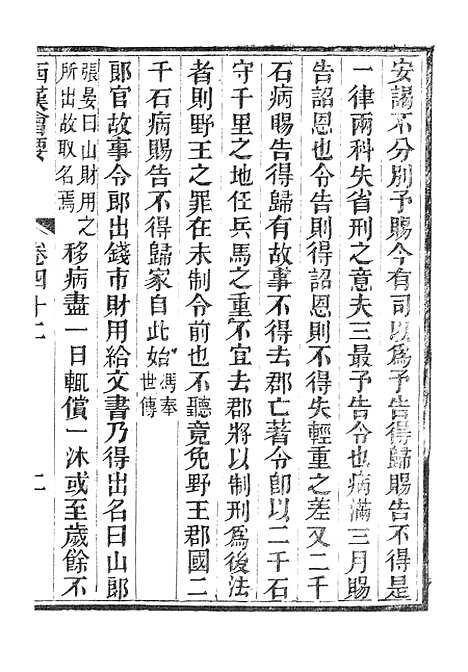 安謁不分別予賜今有司以爲予告得歸賜告不得是
一律兩科失省刑之意夫三最予告令也病滿三月賜
告詔恩也令告則得詔恩則不得失輕重之差又二千
石病賜告得歸有故事不得去郡亡著令卽以二千石
守千里之地任兵馬之重不宜去郡將以制刑爲後法
者則野王之罪在未制令前也不聽竟免野王郡國二
千石病賜告不得歸家自此始馮奉世傳
郞官故事令郞出錢市財用給文書乃得出名曰山郞
張晏曰山財用之所出故取名焉移病盡一日輒償一沐或至歲餘不
西漢會要 卷四十二 二